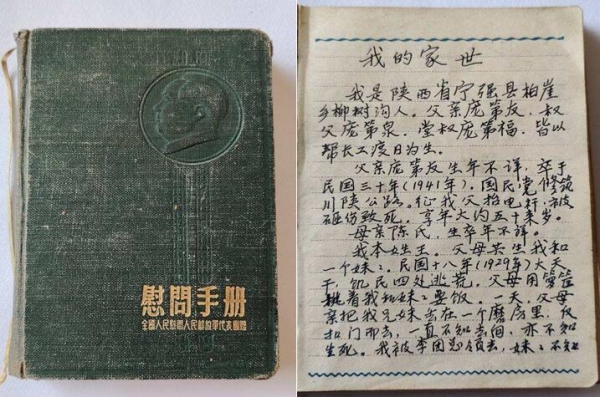 慰問手册
全國人民慰問人民解放軍代表團贈
我的家世
我是陕西省宁强县柏崖
乡柳树沟人。父亲庞第友，叔
父庞第泉，堂叔庞第福，皆以
帮长工渡日为生。
父亲庞第友生年不详，卒于
民国三十年（1941年）。国民党修筑
川陕公路。征我父抬电杆，被
砸伤致死，享年大约五十来岁。
母亲陈氏，生卒年不详。
我本姓王。父母共生我和
一个妹妹。民国十八年（1929年）大天
干，饥民四处逃荒，父母用箩筐
挑着我和妹妹要饭。一天，父母
亲把我兄妹舍在一个磨房里，反
扣门而去，一直不知去向，亦不知
生死。我被李团总领去，妹妹不知